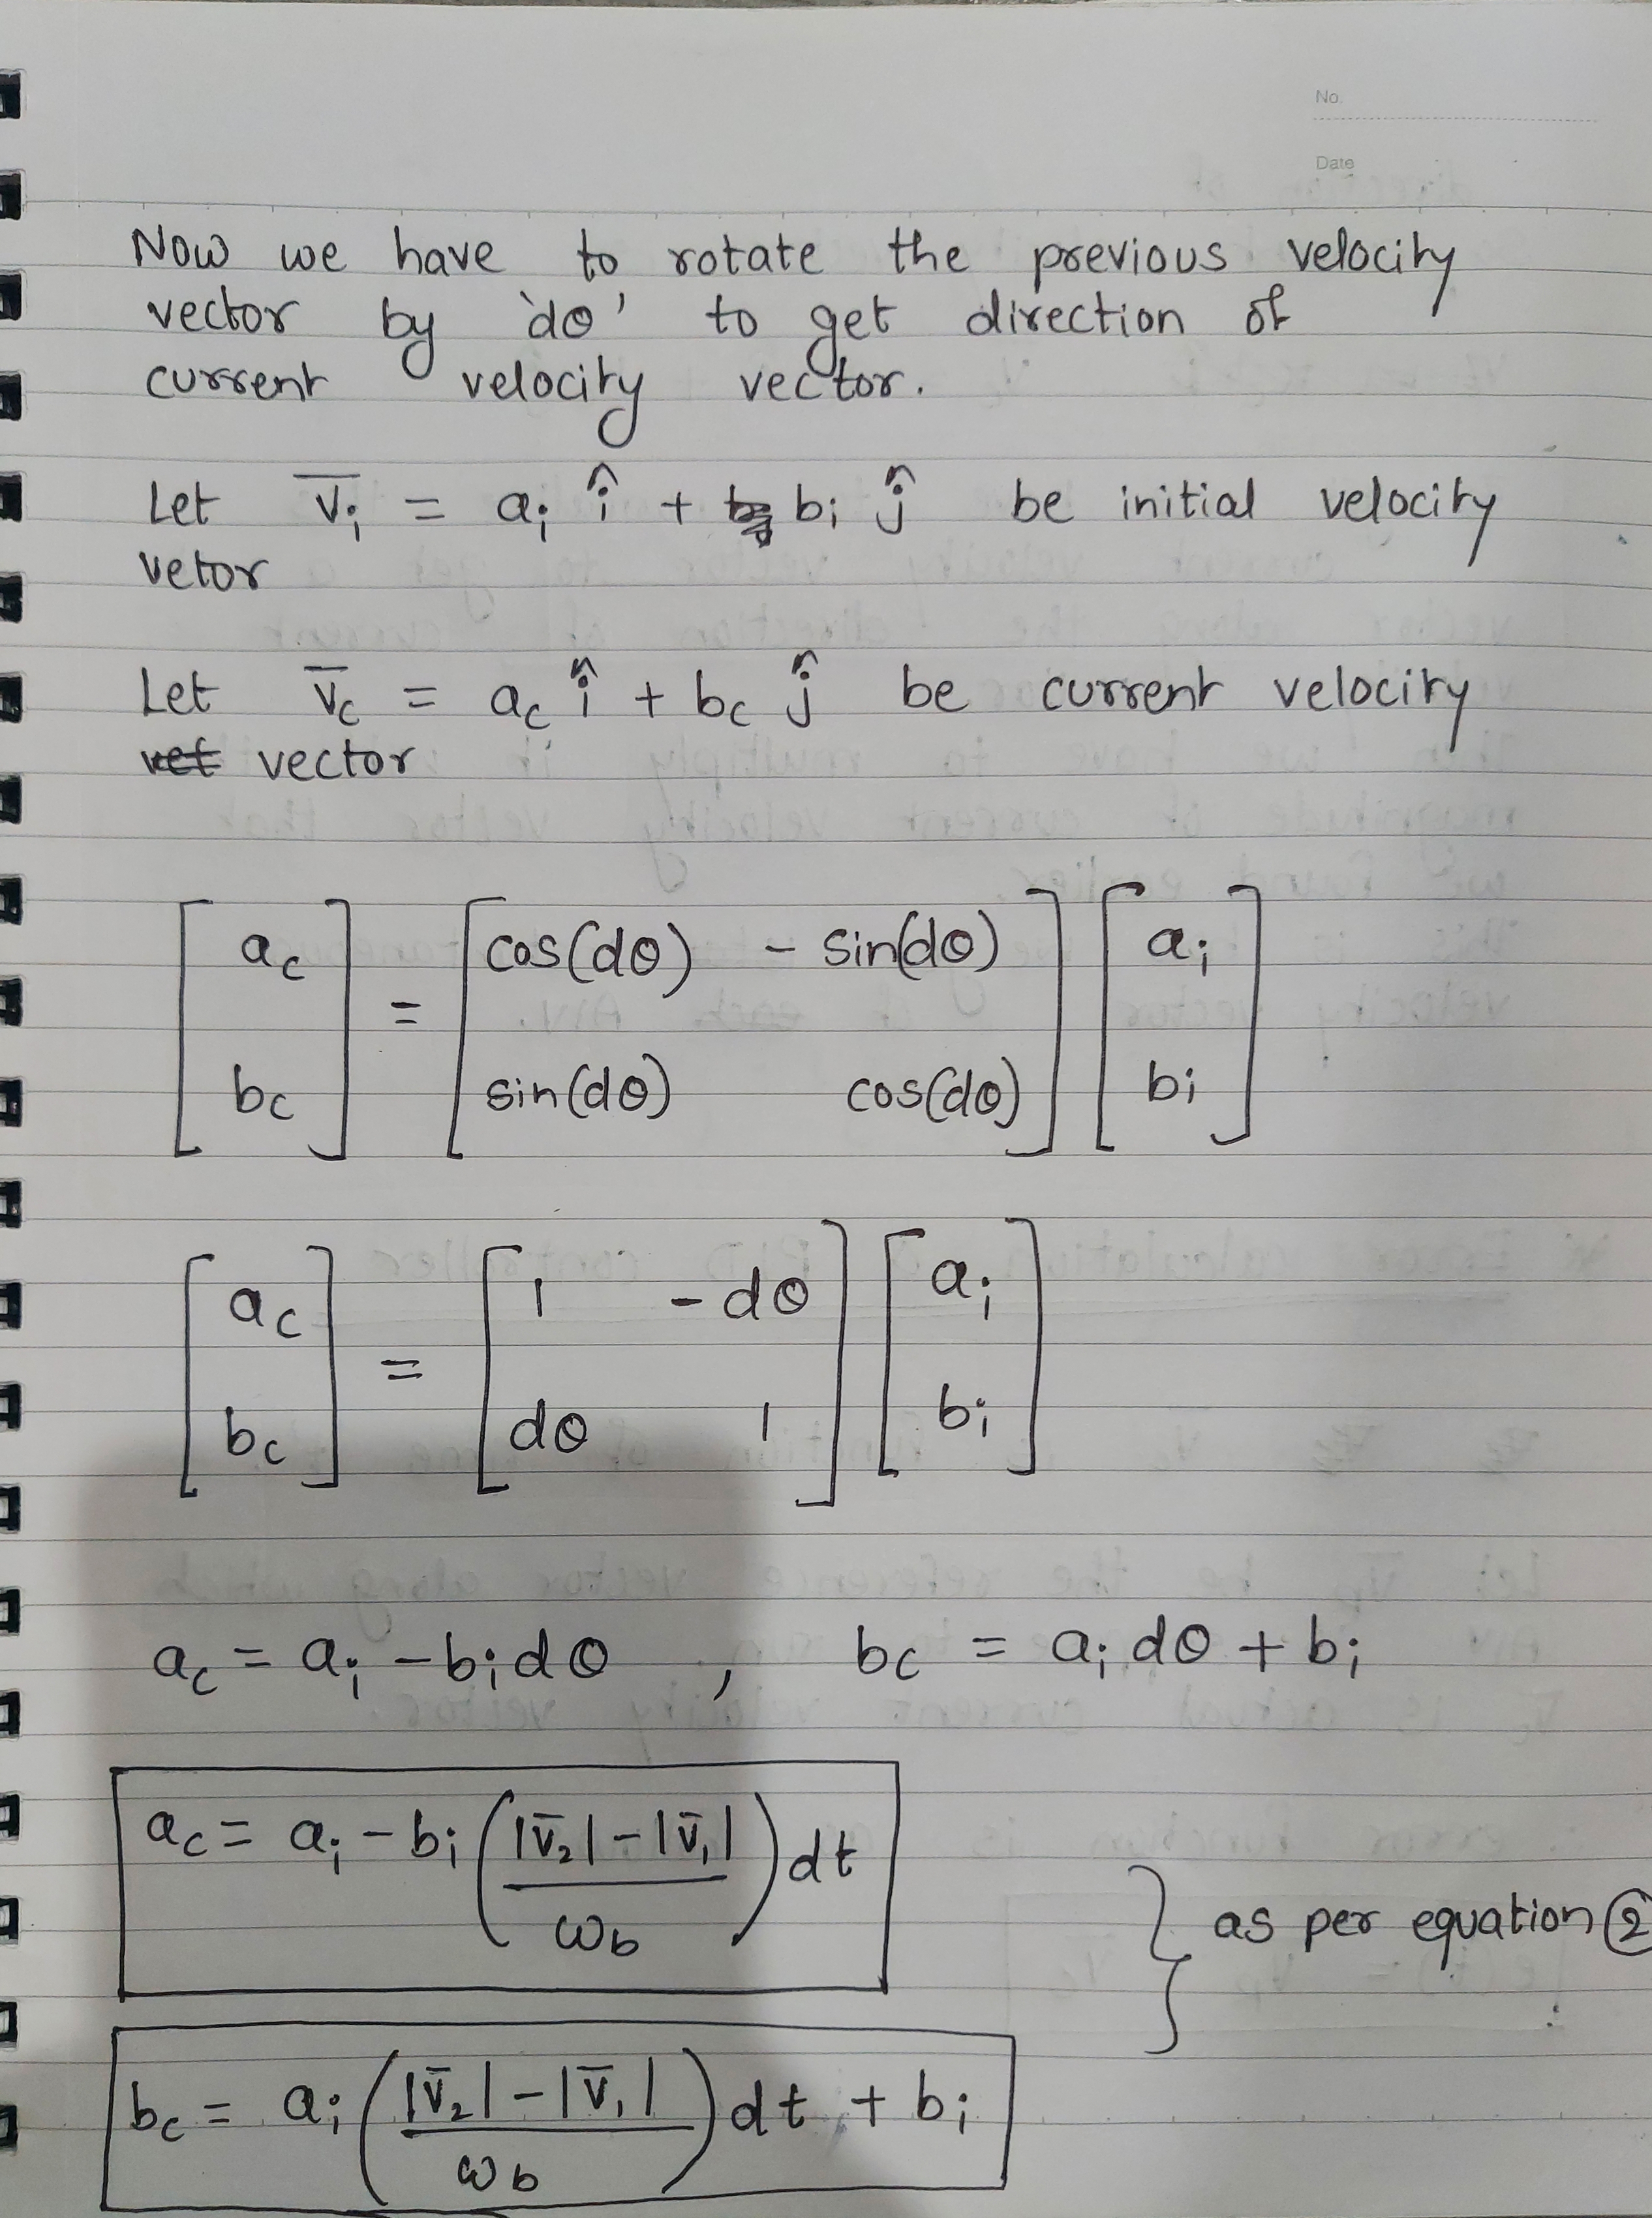 No.
Date
Now we have to rotate the previous velocity
vector by 'dθ' to get direction of
current velocity vector.
Let v̅ᵢ = aᵢ î + bᵢ ĵ be initial velocity
vetor
Let v̅_c = a_c î + b_c ĵ be current velocity
vet vector
[a_c; b_c] = [cos(dθ) -sin(dθ); sin(dθ) cos(dθ)] [aᵢ; bᵢ]
[a_c; b_c] = [1 -dθ; dθ 1] [aᵢ; bᵢ]
a_c = aᵢ - bᵢdθ , b_c = aᵢ dθ + bᵢ
a_c = aᵢ - bᵢ ((|v̅₂| - |v̅₁|)/ω_b) dt
} as per equation ②
b_c = aᵢ ((|v̅₂| - |v̅₁|)/ω_b) dt + bᵢ